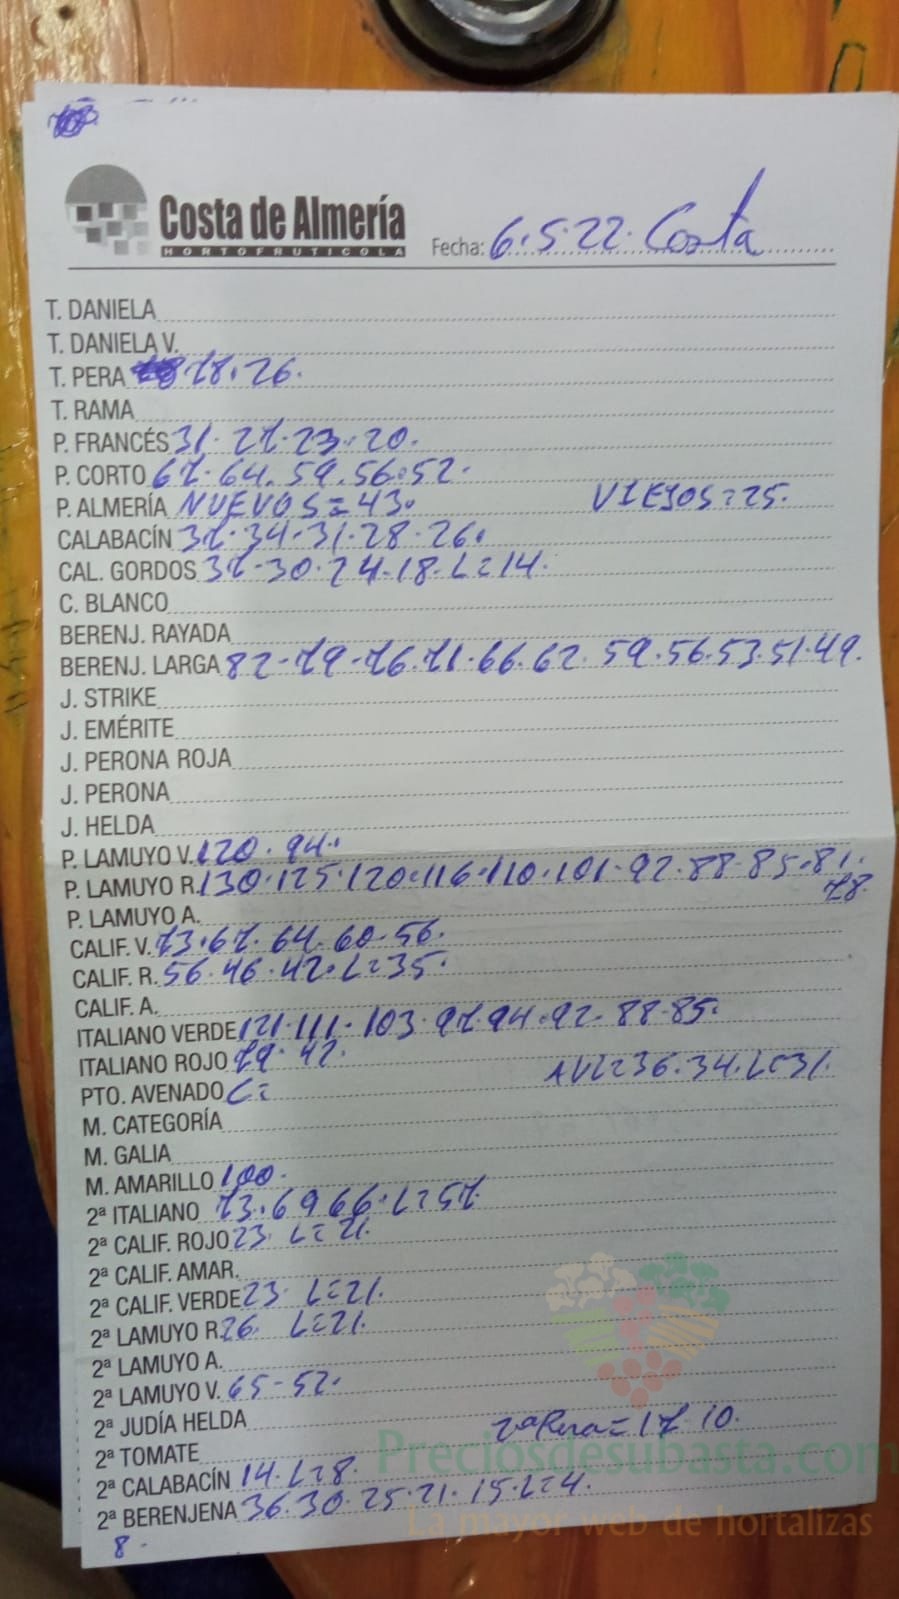 Costa de Almería
HORTOFRUTICOLA
Fecha: 6.5.22. Costa
T. DANIELA
T. DANIELA V.
T. PERA 78.26.
T. RAMA
P. FRANCÉS 31.27.23.20.
P. CORTO 67.64.59.56.52.
P. ALMERÍA NUEVOS=43. VIEJOS=25.
CALABACÍN 37.34.31.28.26.
CAL. GORDOS 37.30.24.18.L=14.
C. BLANCO
BERENJ. RAYADA
BERENJ. LARGA 82-79-76.71.66.62.59.56.53.51.49.
J. STRIKE
J. EMÉRITE
J. PERONA ROJA
J. PERONA
J. HELDA
P. LAMUYO V. 120.94.
P. LAMUYO R. 130.125.120.116.110.101.92.88.85.81.
78.
P. LAMUYO A.
CALIF. V. 73.67.64.60.56.
CALIF. R. 56.46.42.L=35.
CALIF. A.
ITALIANO VERDE 121.111.103.97.94.92.88.85.
ITALIANO ROJO 79.42.
PTO. AVENADO C= AVL=36.34.L=31.
M. CATEGORÍA
M. GALIA
M. AMARILLO 100.
2ª ITALIANO 73.69 66.L=57
2ª CALIF. ROJO 23 L=21.
2ª CALIF. AMAR.
2ª CALIF. VERDE 23 L=21.
2ª LAMUYO R. 26. L=21.
2ª LAMUYO A.
2ª LAMUYO V. 65-52.
2ª JUDÍA HELDA 2ª Pera=17 10.
2ª TOMATE
Preciosdesubasta.com
2ª CALABACÍN 14.L=8.
2ª BERENJENA 36.30.25.21.15.L=4.
La mayor web de hortalizas
8.